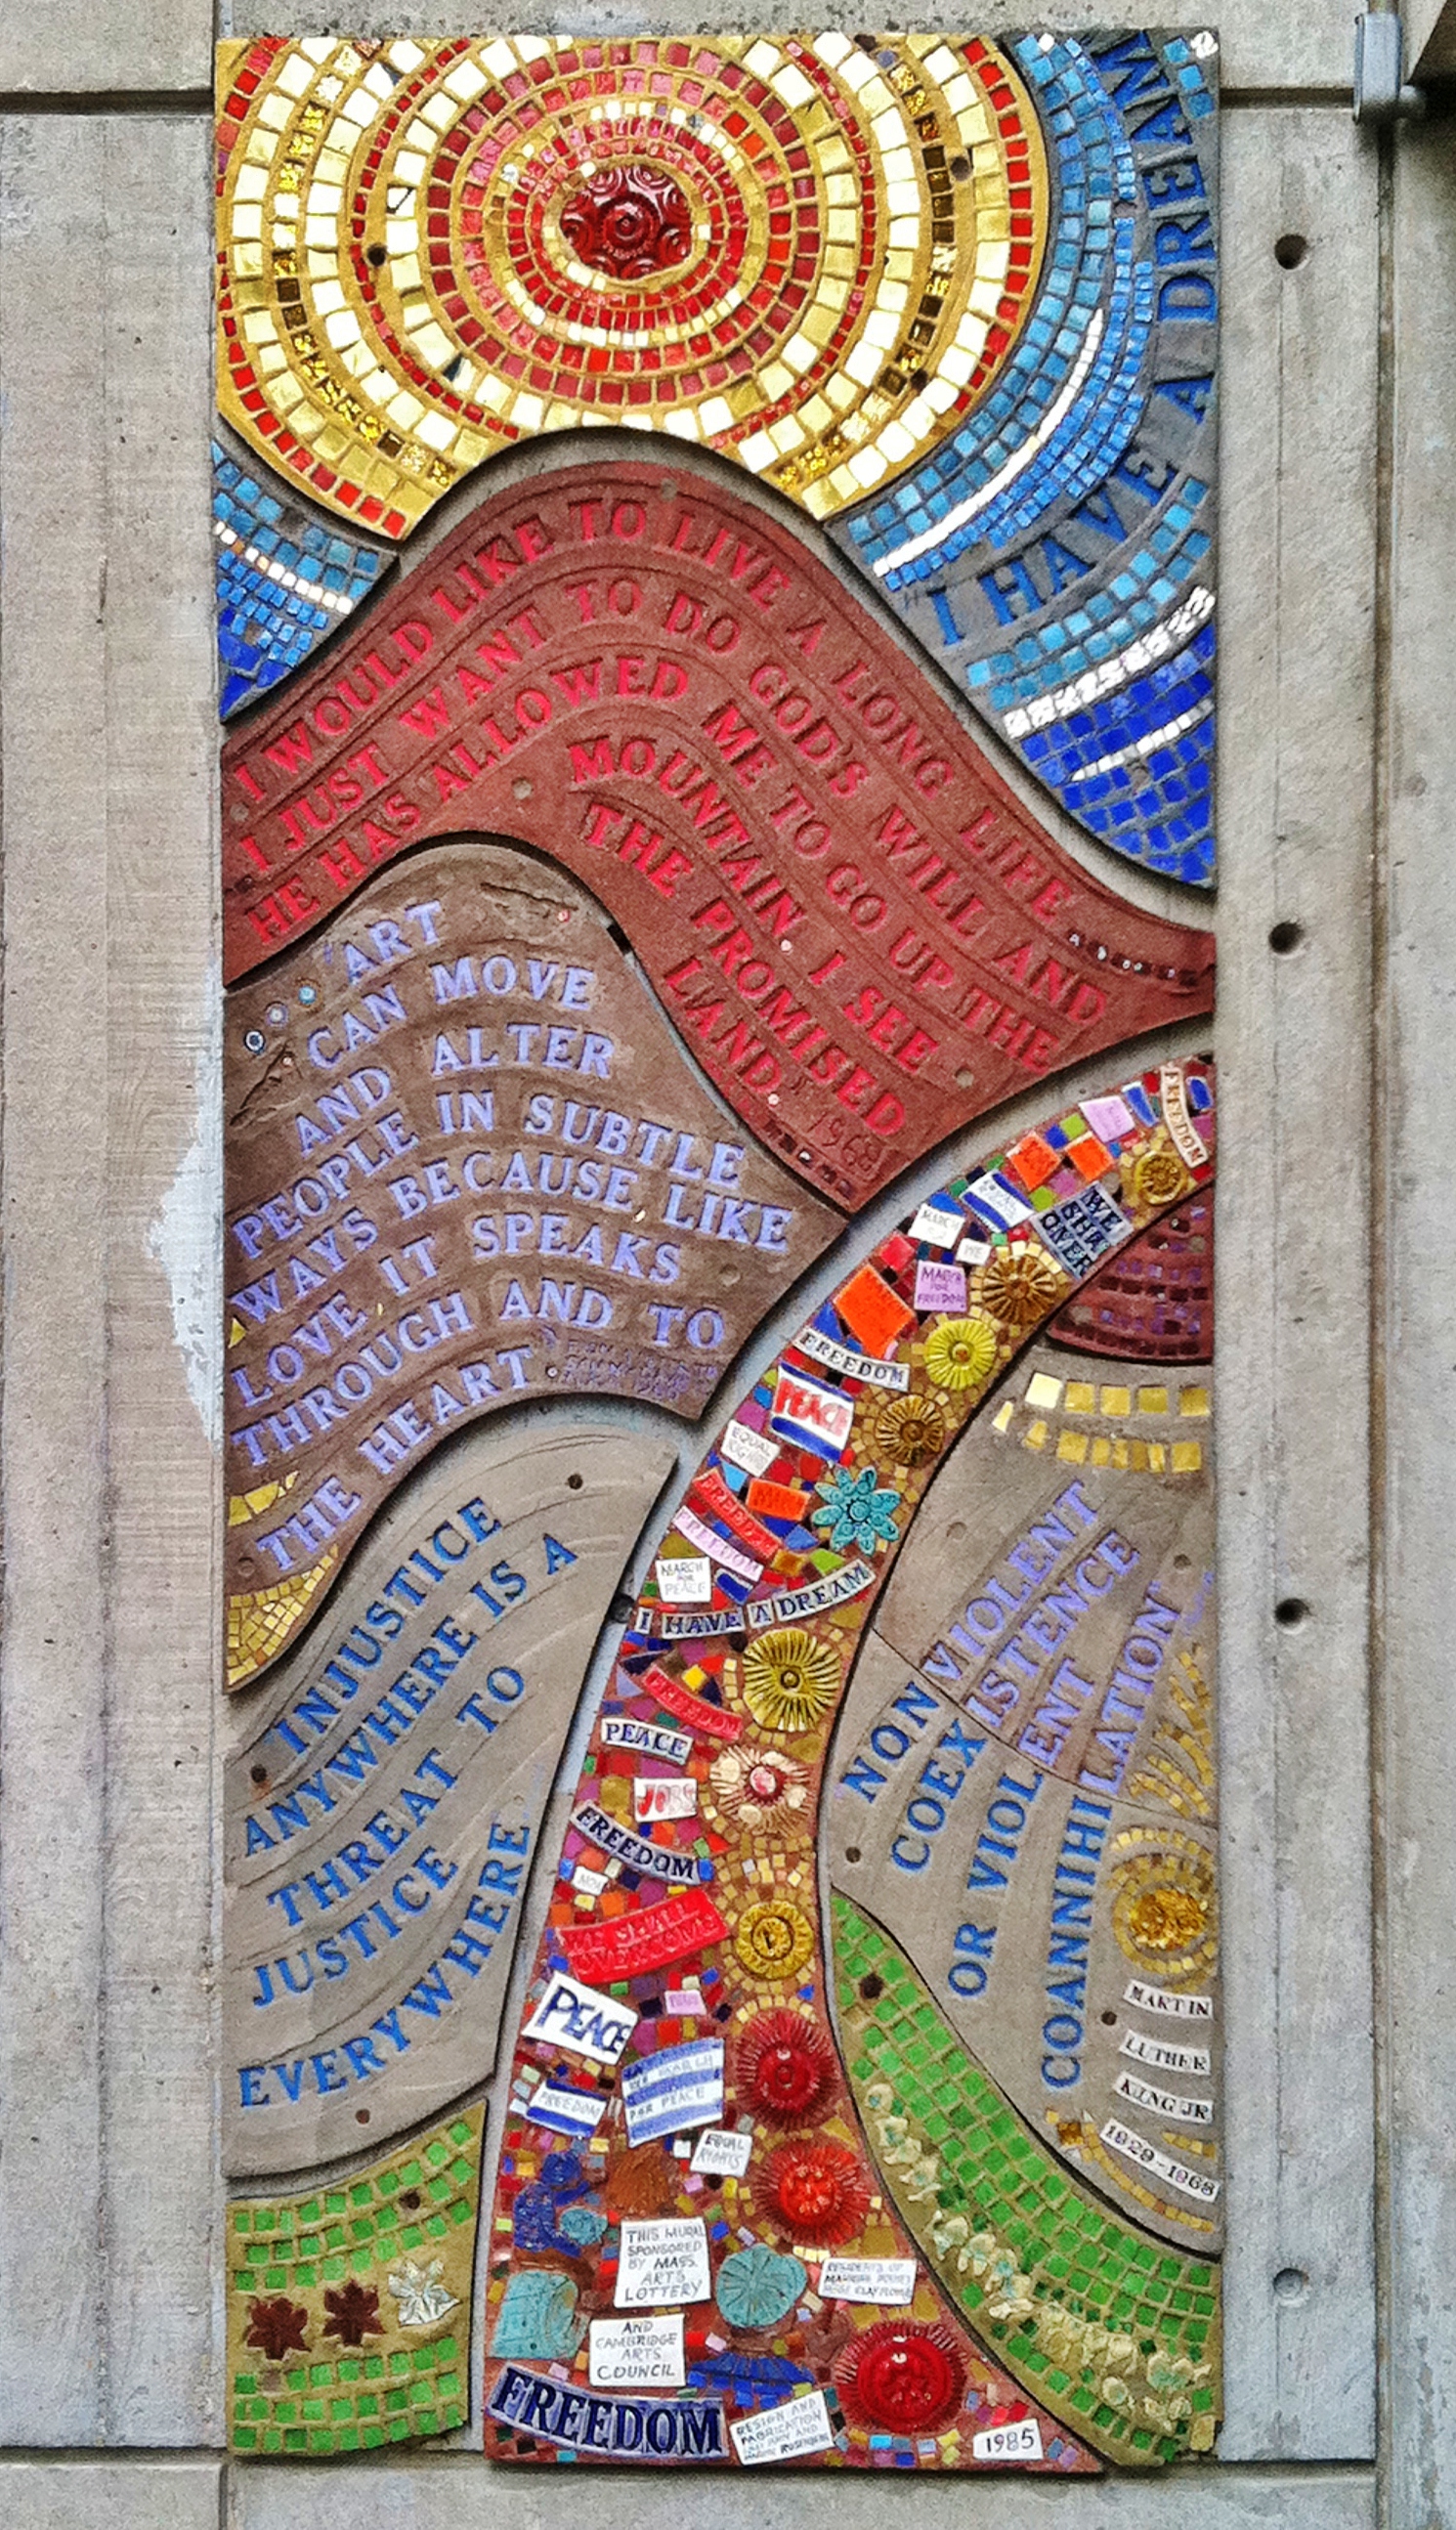 "I HAVE A DREAM
I WOULD LIKE TO LIVE A LONG LIFE
I JUST WANT TO DO GOD'S WILL AND
HE HAS ALLOWED ME TO GO UP THE
MOUNTAIN. I SEE
THE PROMISED
LAND." 1968
"ART
CAN MOVE
AND ALTER
PEOPLE IN SUBTLE
WAYS BECAUSE, LIKE
LOVE IT SPEAKS
THROUGH AND TO
THE HEART"
INJUSTICE
ANYWHERE IS A
THREAT TO
JUSTICE
EVERYWHERE
FREEDOM
WE
SHA
OVER
MARCH
WE
MARCH
FOR
FREEDOM
FREEDOM
PEACE
EQUAL
RIGHTS
FREEDOM
FREEDOM
MARCH
FOR
PEACE
I HAVE A DREAM
FREEDOM
PEACE
JOBS
FREEDOM
NOW
WE SHALL
OVERCOME
PEACE
MARCH
FOR PEACE
FREEDOM
EQUAL
RIGHTS
THIS MURAL
SPONSORED
BY MASS.
ARTS
LOTTERY
AND
CAMBRIDGE
ARTS
COUNCIL
RESIDENTS OF
FREEDOM
DESIGN AND
FABRICATION
1985
NON VIOLENT
COEXISTENCE
OR VIOLENT
COANNIHILATION
MARTIN
LUTHER
KING JR
1929-1968